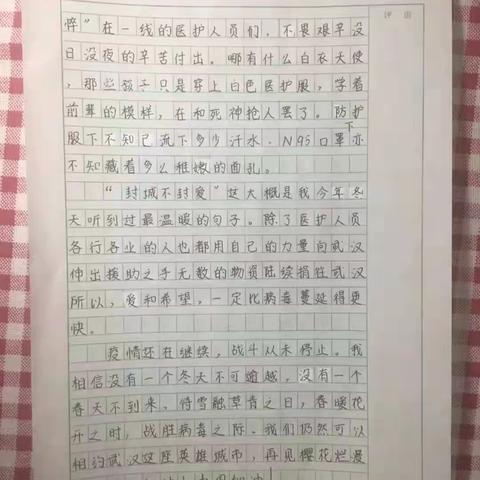 评语
悴"在一线的医护人员们,不畏艰辛没
日没夜的辛苦付出。哪有什么白衣天使
,那些孩子只是穿上白色医护服,学着
前辈的模样,在和死神抢人罢了。防护
服下不知已流下多少汗水.N95口罩下亦
不知藏着多么稚嫩的面孔。
"封城不封爱"这大概是我今年冬
天听到过最温暖的句子。除了医护人员
各行各业的人也都用自己的力量向武汉
伸出援助之手无数的物资陆续捐往武汉
所以,爱和希望,一定比病毒蔓延得更
快。
疫情还在继续,战斗从未停止。我
相信没有一个冬天不可逾越,没有一个
春天不到来。待雪融草青之日,春暖花
开之时,战胜病毒之际。我们仍然可以
相约武汉这座英雄城市,再见樱花烂漫